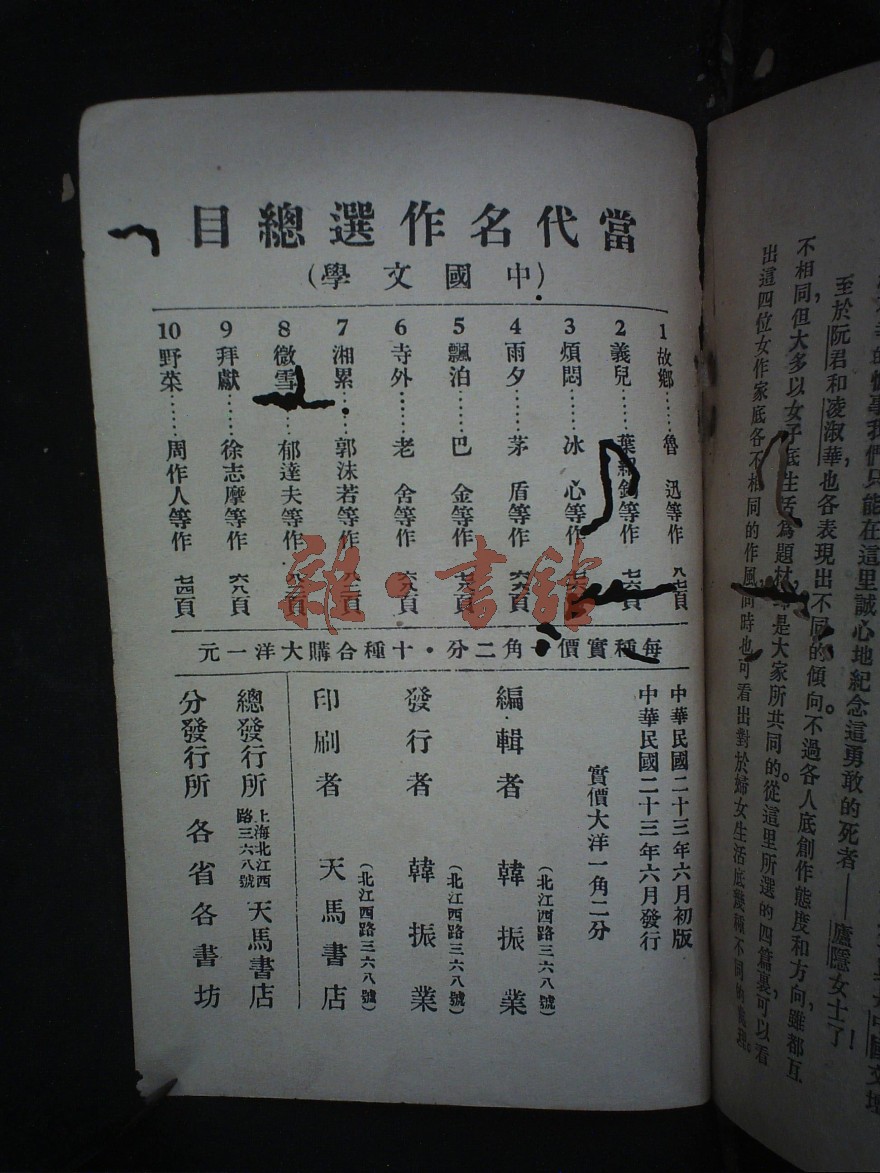 當代名作選總目
(中國文學)
1 故鄉……魯 迅等作 八七頁
2 義兒……葉紹鈞等作 七六頁
3 煩悶……冰 心等作
4 雨夕……茅 盾等作 六六頁
5 飄泊……巴 金等作
6 寺外……老 舍等作 六八頁
7 湘累……郭沫若等作
8 微雪……郁達夫等作
9 拜獻……徐志摩等作 六八頁
10 野菜……周作人等作 七四頁
每種實價一角二分·十種合購大洋一元
中華民國二十三年六月初版
中華民國二十三年六月發行
實價大洋一角二分
編輯者 韓振業
(北江西路三六八號)
發行者 韓振業
(北江西路三六八號)
印刷者 天馬書店
(北江西路三六八號)
總發行所 上海北江西路三六八號 天馬書店
分發行所 各省各書坊
雜·書館
我們只能在這里誠心地紀念這勇敢的死者——廬隱女士了!
至於阮君和凌淑華,也各表現出不同的傾向。不過各人底創作態度和方向,雖都互
不相同,但大多以女子底生活爲題材,是大家所共同的。從這里所選的四篇裏,可以看
出這四位女作家底各不相同的作風,同時也可看出對於婦女生活底幾種不同的